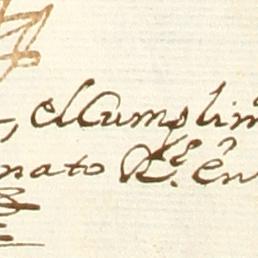 , el Cumplim
nato Rl. en